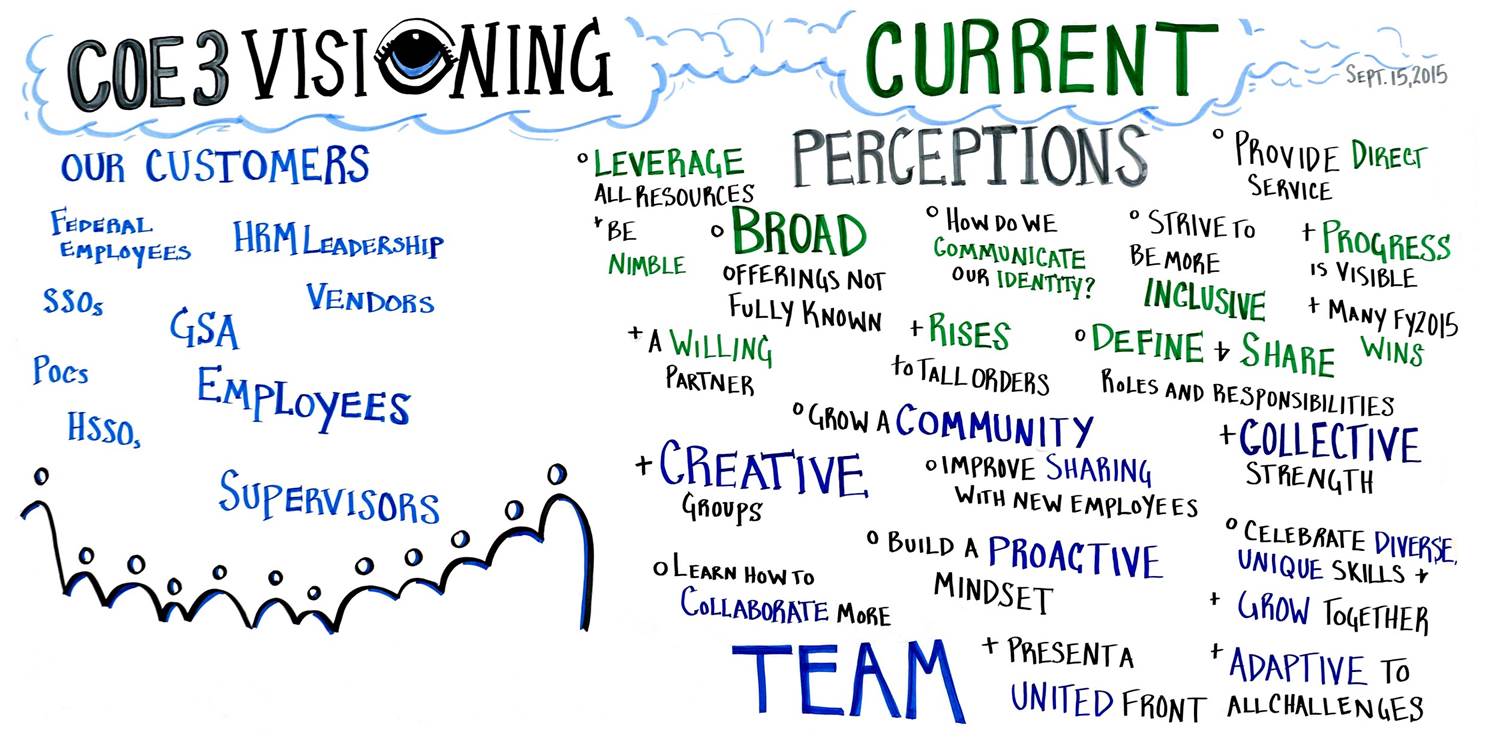 COE3 VISIONING
OUR CUSTOMERS
FEDERAL
EMPLOYEES
HRM LEADERSHIP
SSOs
GSA
EMPLOYEES
VENDORS
POCs
HSSOs
SUPERVISORS
CURRENT
PERCEPTIONS
SEPT. 15, 2015
° LEVERAGE
ALL RESOURCES
+ BE
NIMBLE
° BROAD
OFFERINGS NOT
FULLY KNOWN
° HOW DO WE
COMMUNICATE
OUR IDENTITY?
° STRIVE TO
BE MORE
INCLUSIVE
° PROVIDE DIRECT
SERVICE
+ PROGRESS
IS VISIBLE
+ MANY FY2015
WINS
+ A WILLING
PARTNER
+ RISES
to TALL ORDERS
° DEFINE + SHARE
ROLES AND RESPONSIBILITIES
° GROW A COMMUNITY
+ COLLECTIVE
STRENGTH
+ CREATIVE
GROUPS
° IMPROVE SHARING
WITH NEW EMPLOYEES
° BUILD A PROACTIVE
MINDSET
° CELEBRATE DIVERSE,
UNIQUE SKILLS +
+ GROW TOGETHER
° LEARN HOW TO
COLLABORATE MORE
TEAM
+ PRESENT A
UNITED FRONT
+ ADAPTIVE TO
ALL CHALLENGES